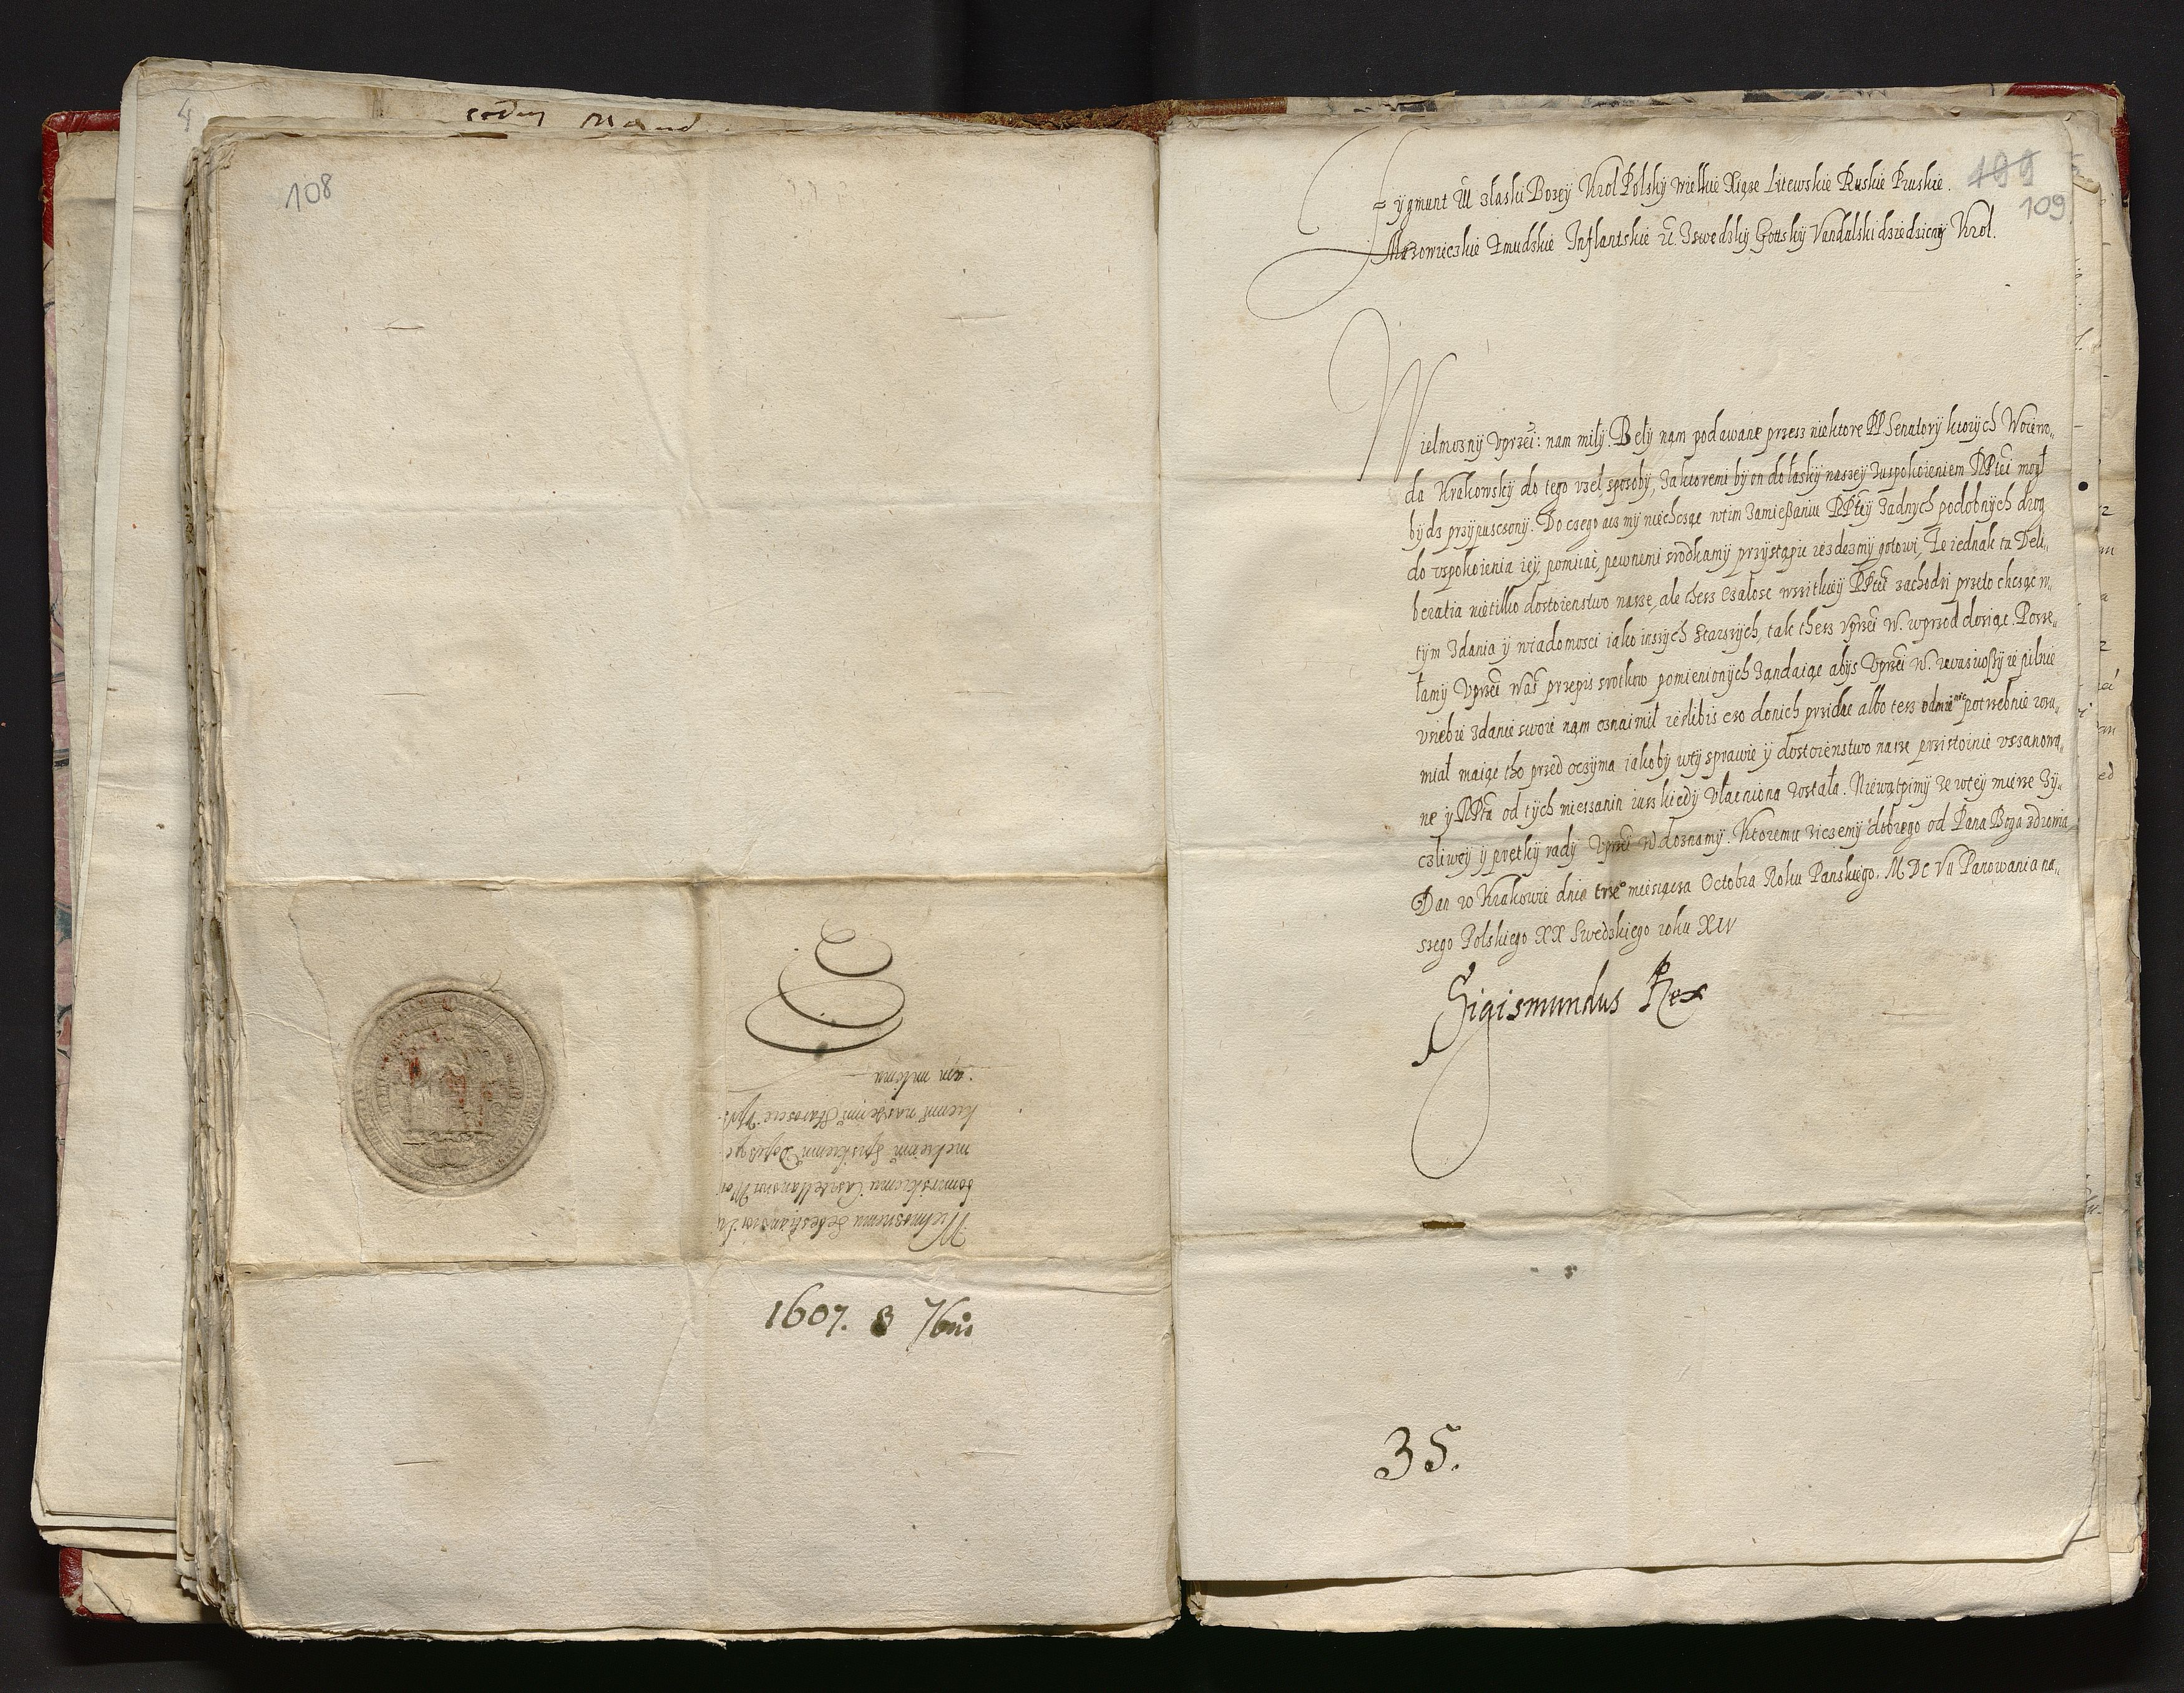 4
108
Wielmoznemu Sebestjanowi Lu
bomirskiemu Castellanowi Woy
nickiemu Spiskiemu Dobczyc
kiemu naszemu Staroscie Uprz.
nam milemu
1607. 8 7bris
109
109
Zygmunt III z łaski Bozey Krol Polsky Wielkie Xiąze Litewskie Ruskie Pruskie.
Mazowieczkie Zmudzkie Inflantskie etc. Zswedzky Gottsky Vandalski dziedziczny Krol.
Wielmozny Vprzei: nam miły. Beły nam podawane przesz niektore PP Senatory ktorych Woiewo„
da Krakowsky do tego vzeł sposoby, za ktoremi by on do łasky naszey zuspokoieniem RPtei mogł
bydz przypusczony. Do czego acz my niechcząc wtim zamieszaniu RPtey zadnych podobnych drog
do vspokoienia iey pomiiać, pewnemi srodkamy przystąpic iezdezmy gotowi, Ze iednak ta Deli„
beratia nietilko dostoienstwo nasze, ale thesz czałosc wszitkiey RPtei zachodzi przeto chcząc w„
tym zdania y wiadomosci iako inszych starszych, tak thesz Vprzei W. wprzod dosiąc. Posse„
łamy Vprzei Was przepis srotkow pomienionych żandaiąc abys Vprzei W. vwasiwszy ie pilnie
vsiebie zdanie swoie nam oznaimił iezlibis czo donich przidac albo tesz odmienic potrzebnie rozu„
miał maiąc tho przed oczyma iakoby wty sprawie y dostoienstwo nasze przistoinie vszanowa„
ne y RPta od tych mieszanin iusz kiedy vlacniona została. Niewątpimy ze wtey mierze zy„
czliwey y prętky rady Vprzei W doznamy. Ktoremu ziczemy dobrego od Pana Boga zdrowia
Dan w Krakowie dnia trze° miesiącza Octobra Roku Panskiego. M DC VII Panowania na„
szego Polskiego XX Swedzkiego roku XIV
Sigismundus Rex
35.